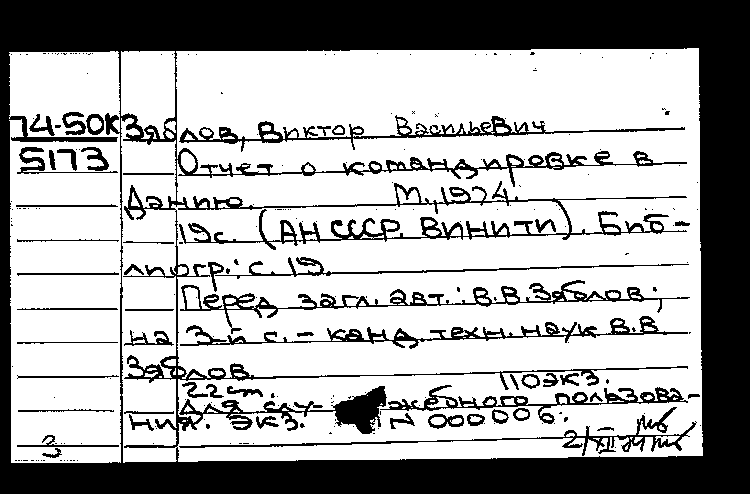 74-50К Зяблов, Виктор Васильевич
5173 Отчет о командировке в
Данию. М., 1974.
19с. (АН СССР. ВИНИТИ). Биб-
лиогр.: с. 19.
Перед загл. авт.: В.В.Зяблов;
на 3-й с. - канд. техн. наук В.В.
Зяблов.
22 см. 110экз.
Для слу- жебного пользова-
ния. Экз. N 000006.
3 2/XII 74